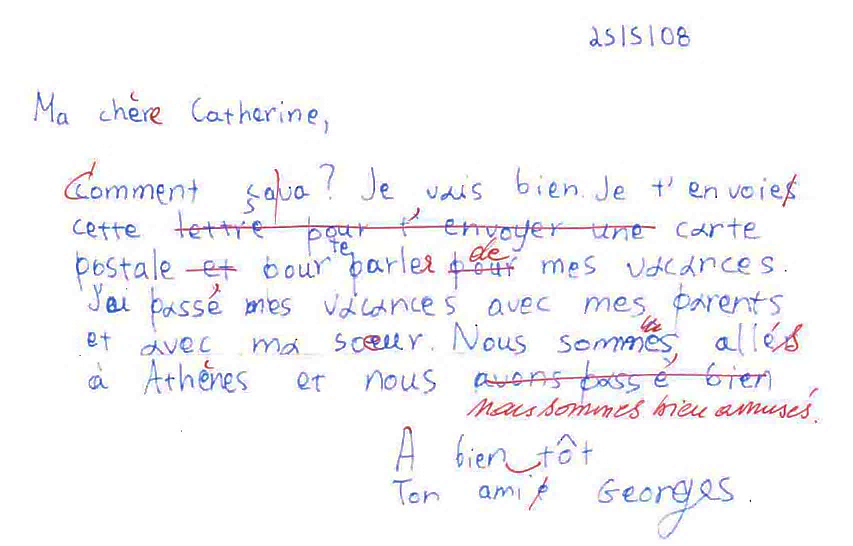 25/5/08
Ma chère Catherine,
Comment ça va? Je vais bien. Je t'envoies
cette lettre pour t'envoyer une carte
te de
postale et pour parler pour mes vacances.
J'ai passé mes vacances avec mes parents
et avec ma sœur. Nous sommes allés
à Athènes et nous avons passé bien
nous sommes bien amusés.
A bientôt
Ton ami Georges.